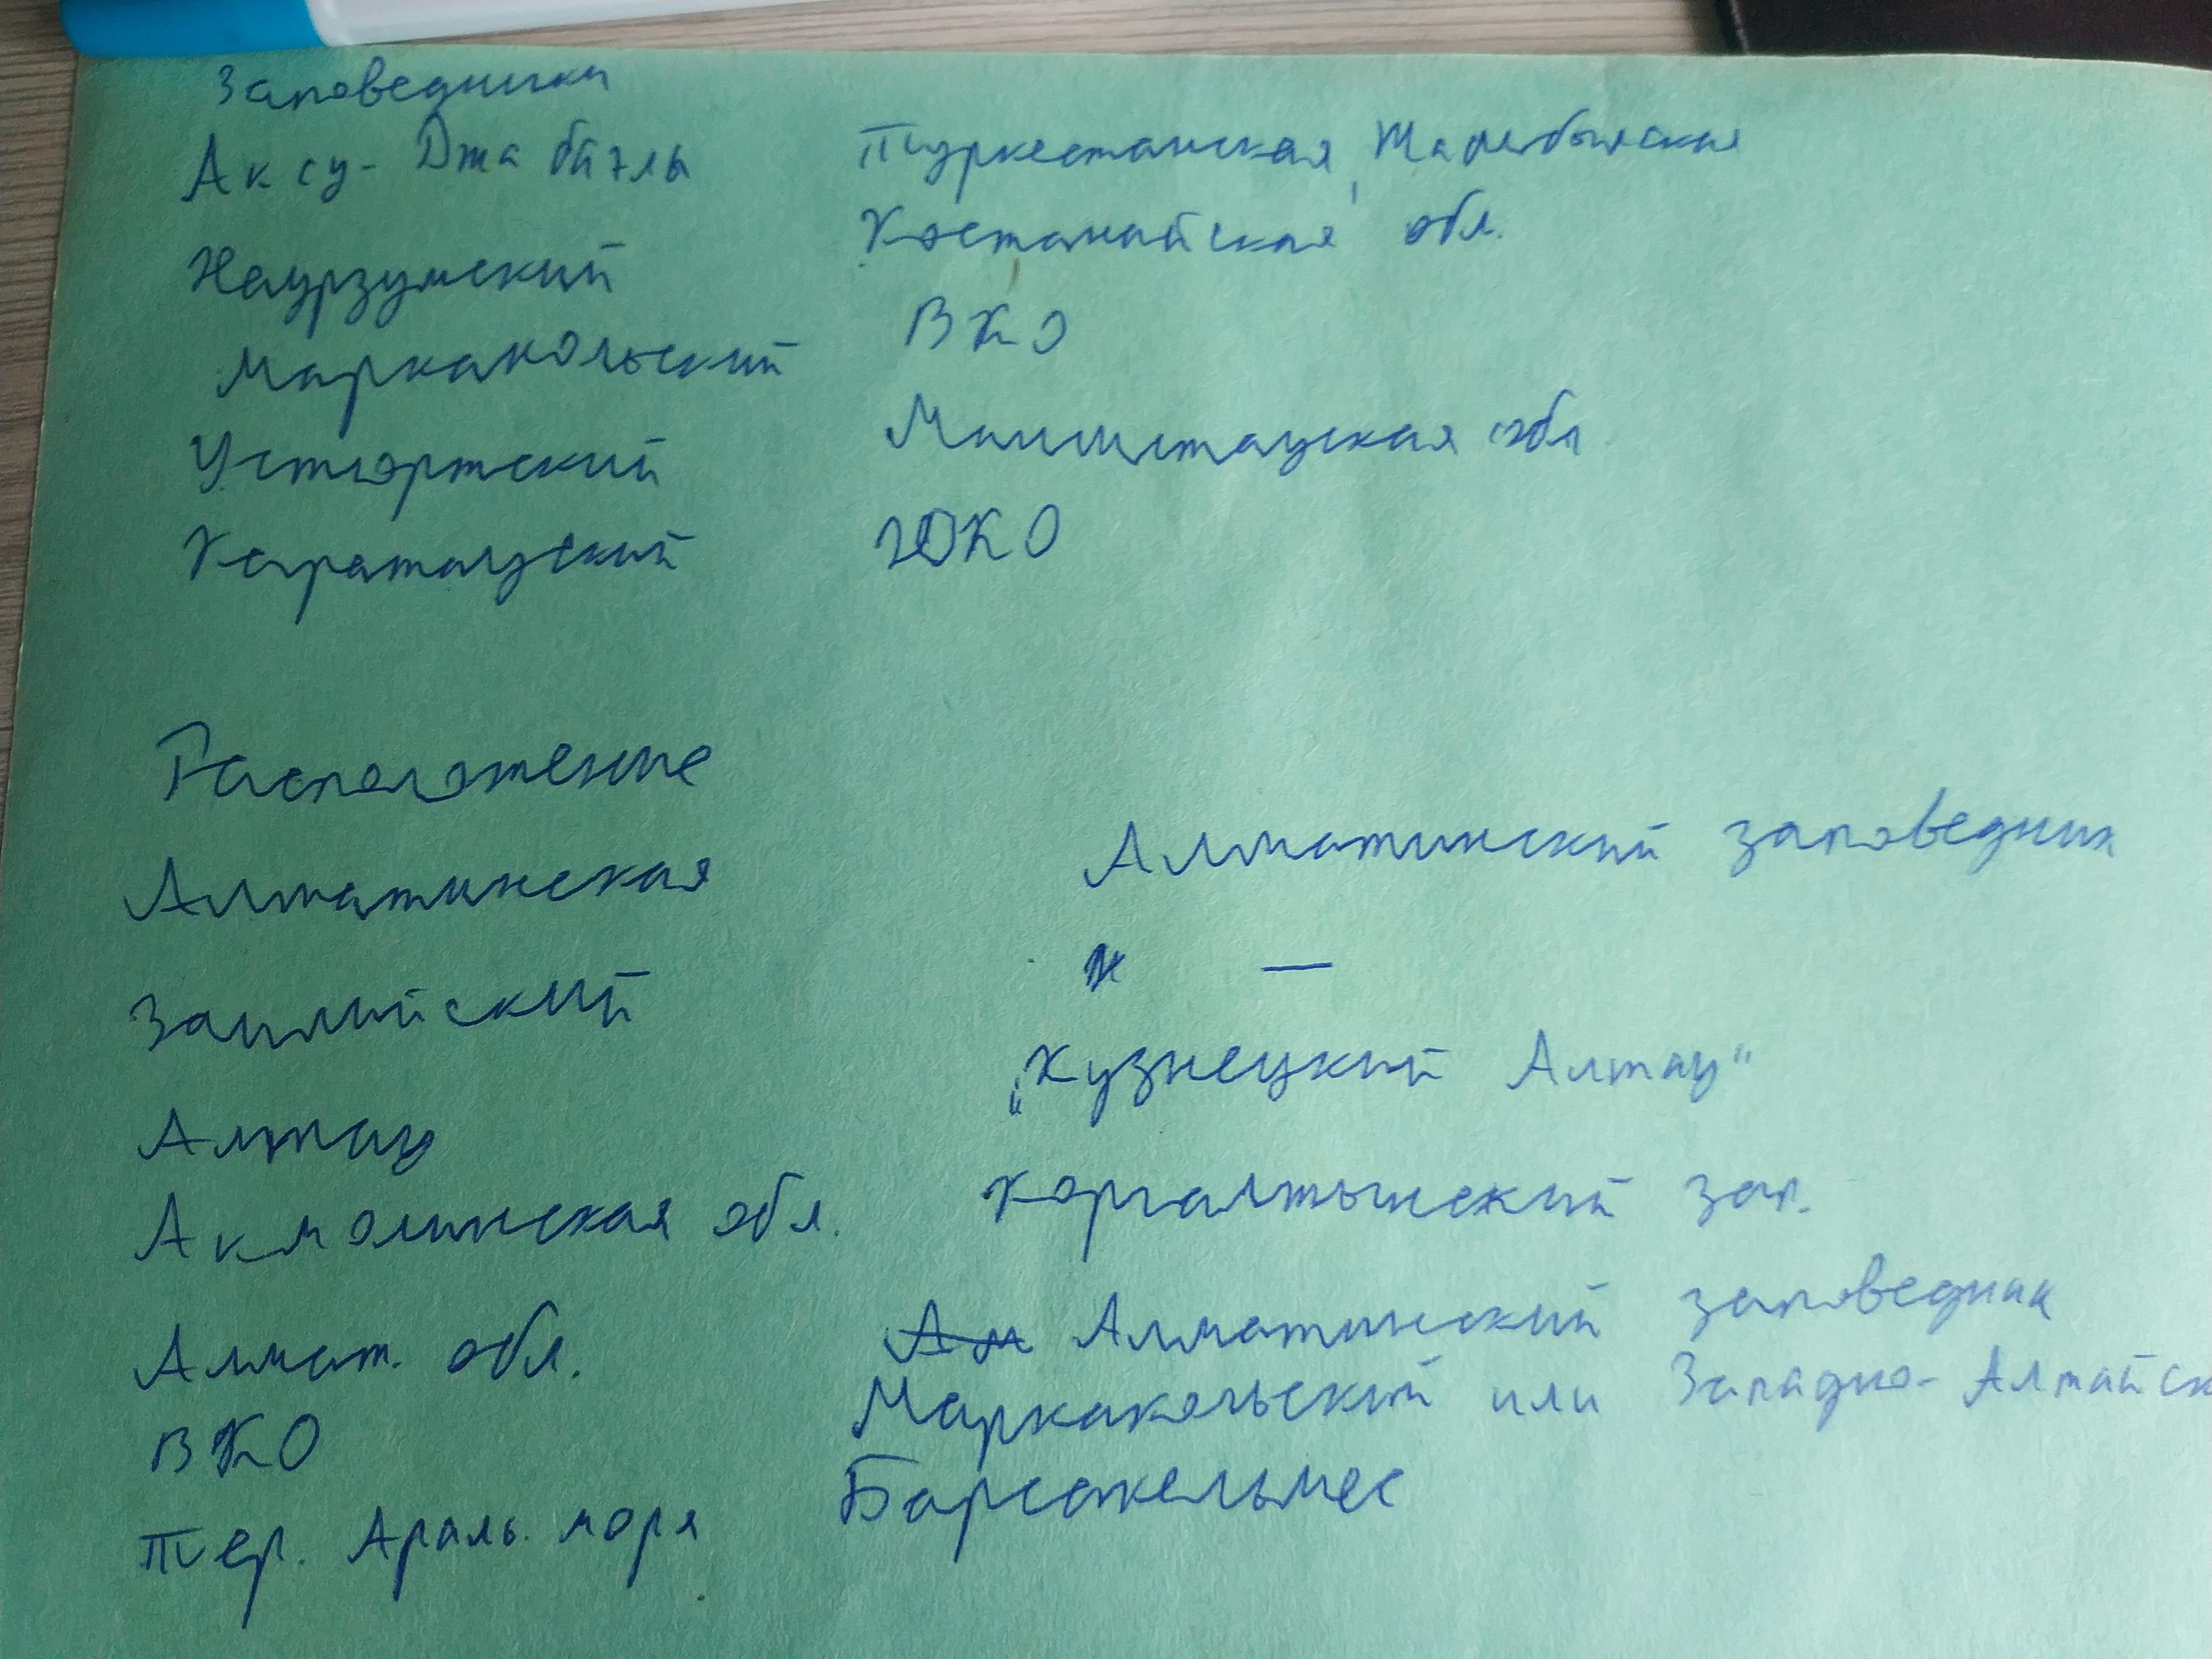 Заповедники
Аксу-Джабаглы Туркестанская, Жамбылская
Наурзумский Костанайская обл.
Маркакольский ВКО
Устюртский Мангистауская обл
Каратауский ЮКО
Расположение
Алматинская Алматинский заповедник
Заилийский —
Алтау „Кузнецкий Алтау“
Акмолинская обл. Коргалтынский зап.
Алмат. обл. Алматинский заповедник
ВКО Маркакольский или Западно-Алтайск
Тер. Араль. моря Барсакельмес